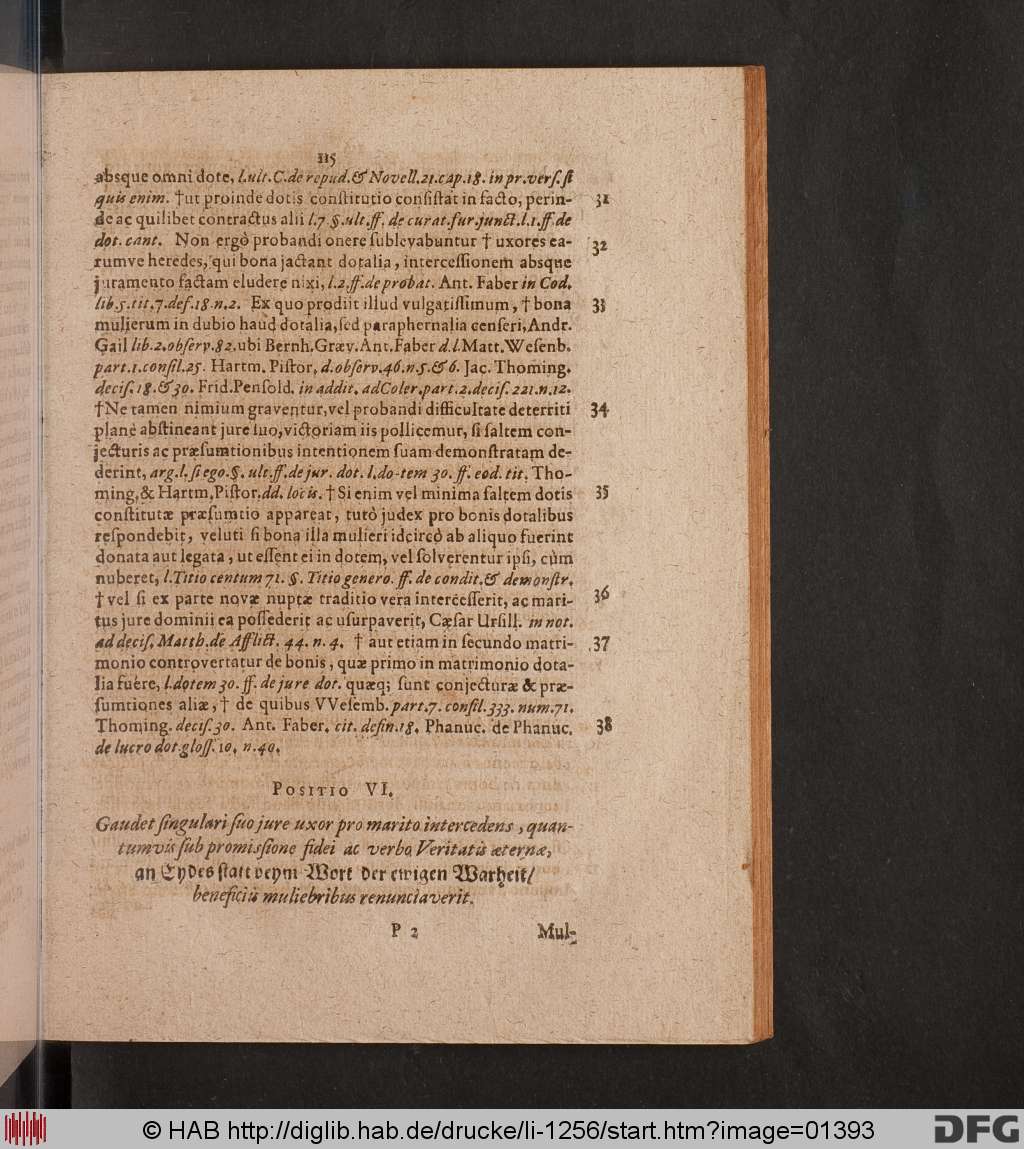 115
absque omni dote, l.ult.C.de repud.& Novell.21.cap.18. in pr.verſ.ſi
quis enim. †ut proinde dotis conſtitutio conſiſtat in facto, perin- 31
de ac quilibet contractus alii l.7.§.ult.ff. de curat.fur.junct.l.1.ff.de
dot. cant. Non ergò probandi onere ſublevabuntur † uxores ea- 32
rumve heredes, qui bona jactant dotalia, interceſſionem absque
juramento factam eludere nixi, l.2.ff.de probat. Ant. Faber in Cod.
lib.5.tit.7.def.18.n.2. Ex quo prodiit illud vulgatiſſimum, † bona 33
mulierum in dubio haud dotalia, ſed paraphernalia cenſeri, Andr.
Gail lib.2.obſerv.82.ubi Bernh.Græv.Ant.Faber d.l.Matt.Weſenb.
part.1.conſil.25. Hartm. Piſtor, d.obſerv.46.n.5.&6. Jac. Thoming.
deciſ.18.&30. Frid.Penſold. in addit. ad Coler.part.2.deciſ.221.n.12.
†Ne tamen nimium graventur, vel probandi difficultate deterriti 34
planè abſtineant jure ſuo, victoriam iis pollicemur, ſi ſaltem con-
jecturis ac præſumtionibus intentionem ſuam demonſtratam de-
derint, arg.l.ſi ego.§. ult.ff.de jur. dot. l.do-tem 30. ff. eod. tit. Tho-
ming.& Hartm.Piſtor.dd. locis. †Si enim vel minima ſaltem dotis 35
conſtitutæ præſumtio appareat, tutò judex pro bonis dotalibus
reſpondebit, veluti ſi bona illa mulieri idcircò ab aliquo fuerint
donata aut legata, ut eſſent ei in dotem, vel ſolverentur ipſi, cùm
nuberet, l.Titio centum 71. §. Titio genero. ff. de condit.& demonſtr.
† vel ſi ex parte novæ nuptæ traditio vera interceſſerit, ac mari- 36
tus jure dominii ea poſſederit ac uſurpaverit, Cæſar Urſill. in not.
ad deciſ. Matth.de Afflict. 44. n. 4. † aut etiam in ſecundo matri- 37
monio controvertatur de bonis, quæ primo in matrimonio dota-
lia fuêre, l.dotem 30. ff. de jure dot. quæq; ſunt conjecturæ & præ-
ſumtiones aliæ, † de quibus VVeſemb.part.7. conſil.333. num.71.
Thoming. deciſ.30. Ant. Faber. cit. defin.18. Phanuc. de Phanuc. 38
de lucro dot.gloſſ.10. n.40.
POSITIO VI.
Gaudet ſingulari ſuo jure uxor pro marito intercedens, quan-
tumvis ſub promiſsione fidei ac verbo Veritatis æternæ,
an Eydes ſtatt beym Wort der ewigen Warheit/
beneficiis muliebribus renunciaverit.
P 2 Mul-
© HAB http://diglib.hab.de/drucke/li-1256/start.htm?image=01393
DFG